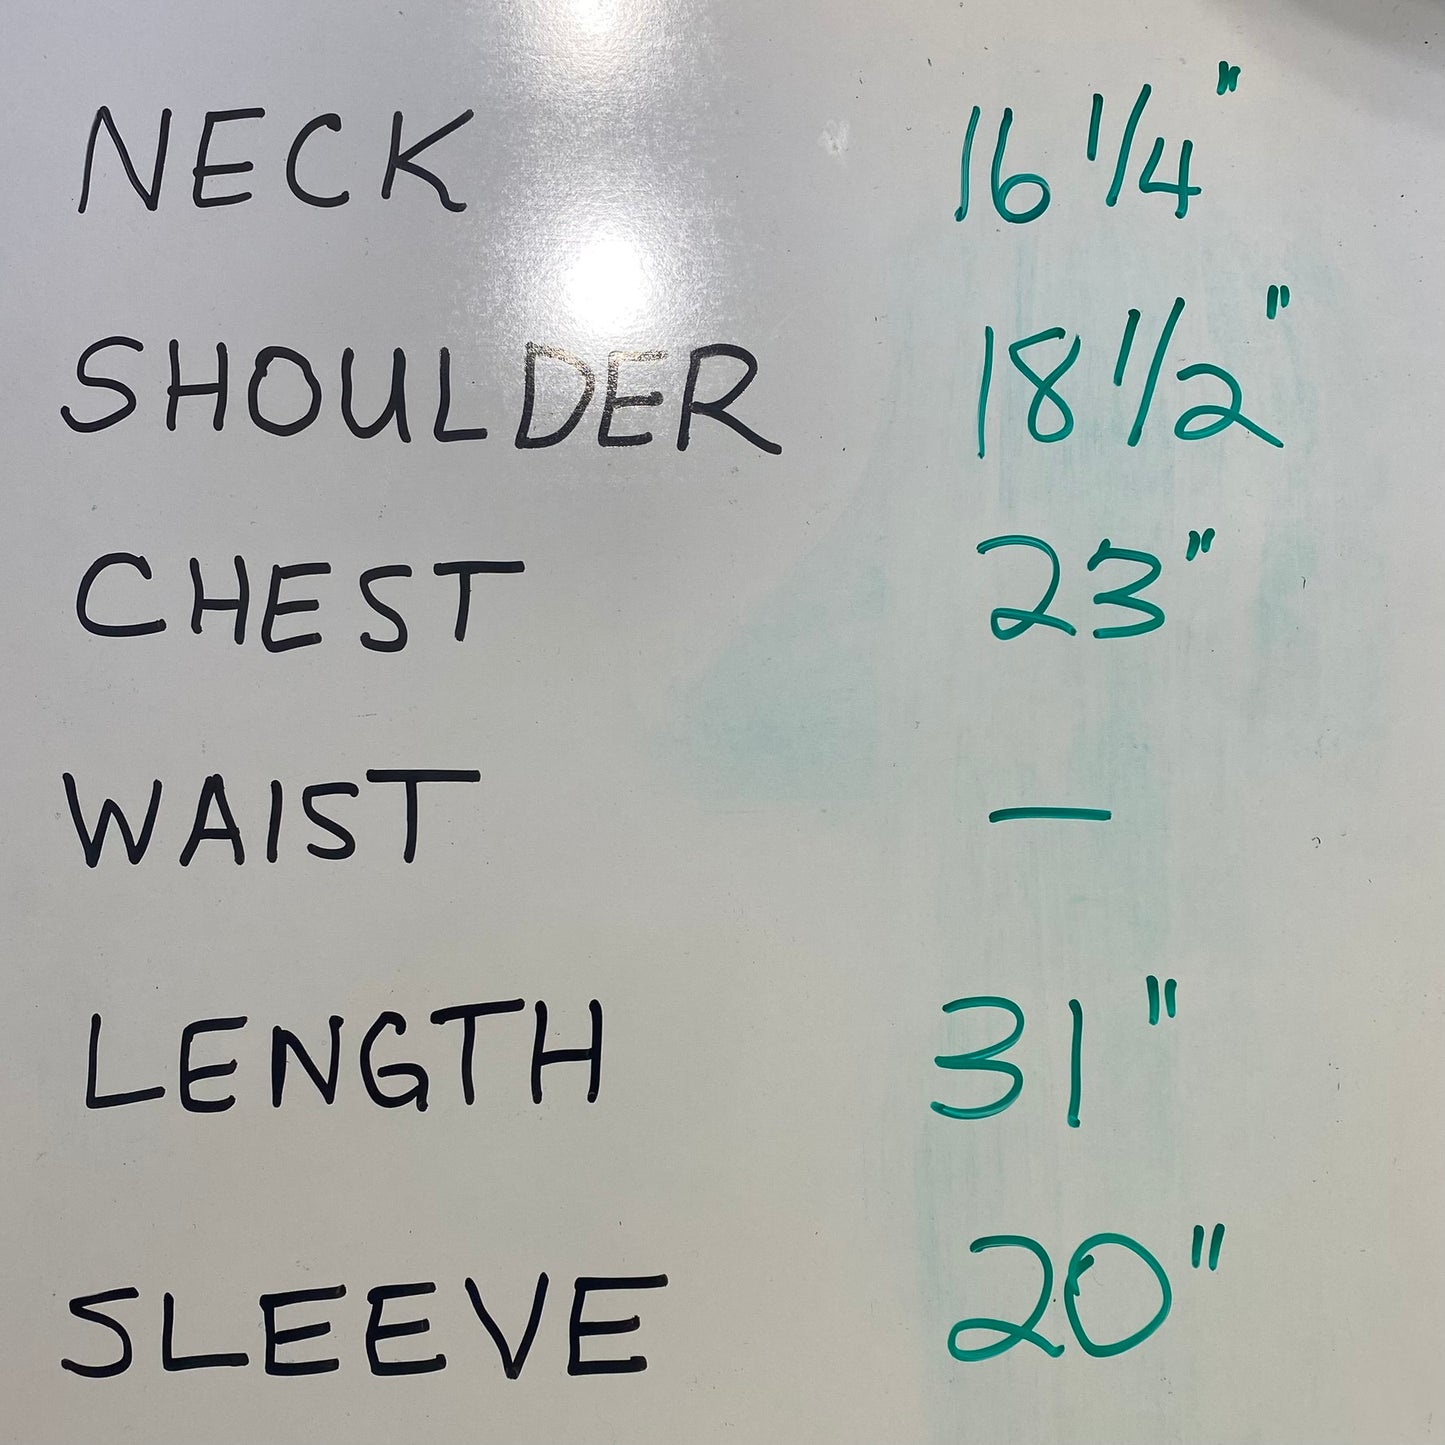 NECK 16 1/4"
SHOULDER 18 1/2"
CHEST 23"
WAIST —
LENGTH 31"
SLEEVE 20"